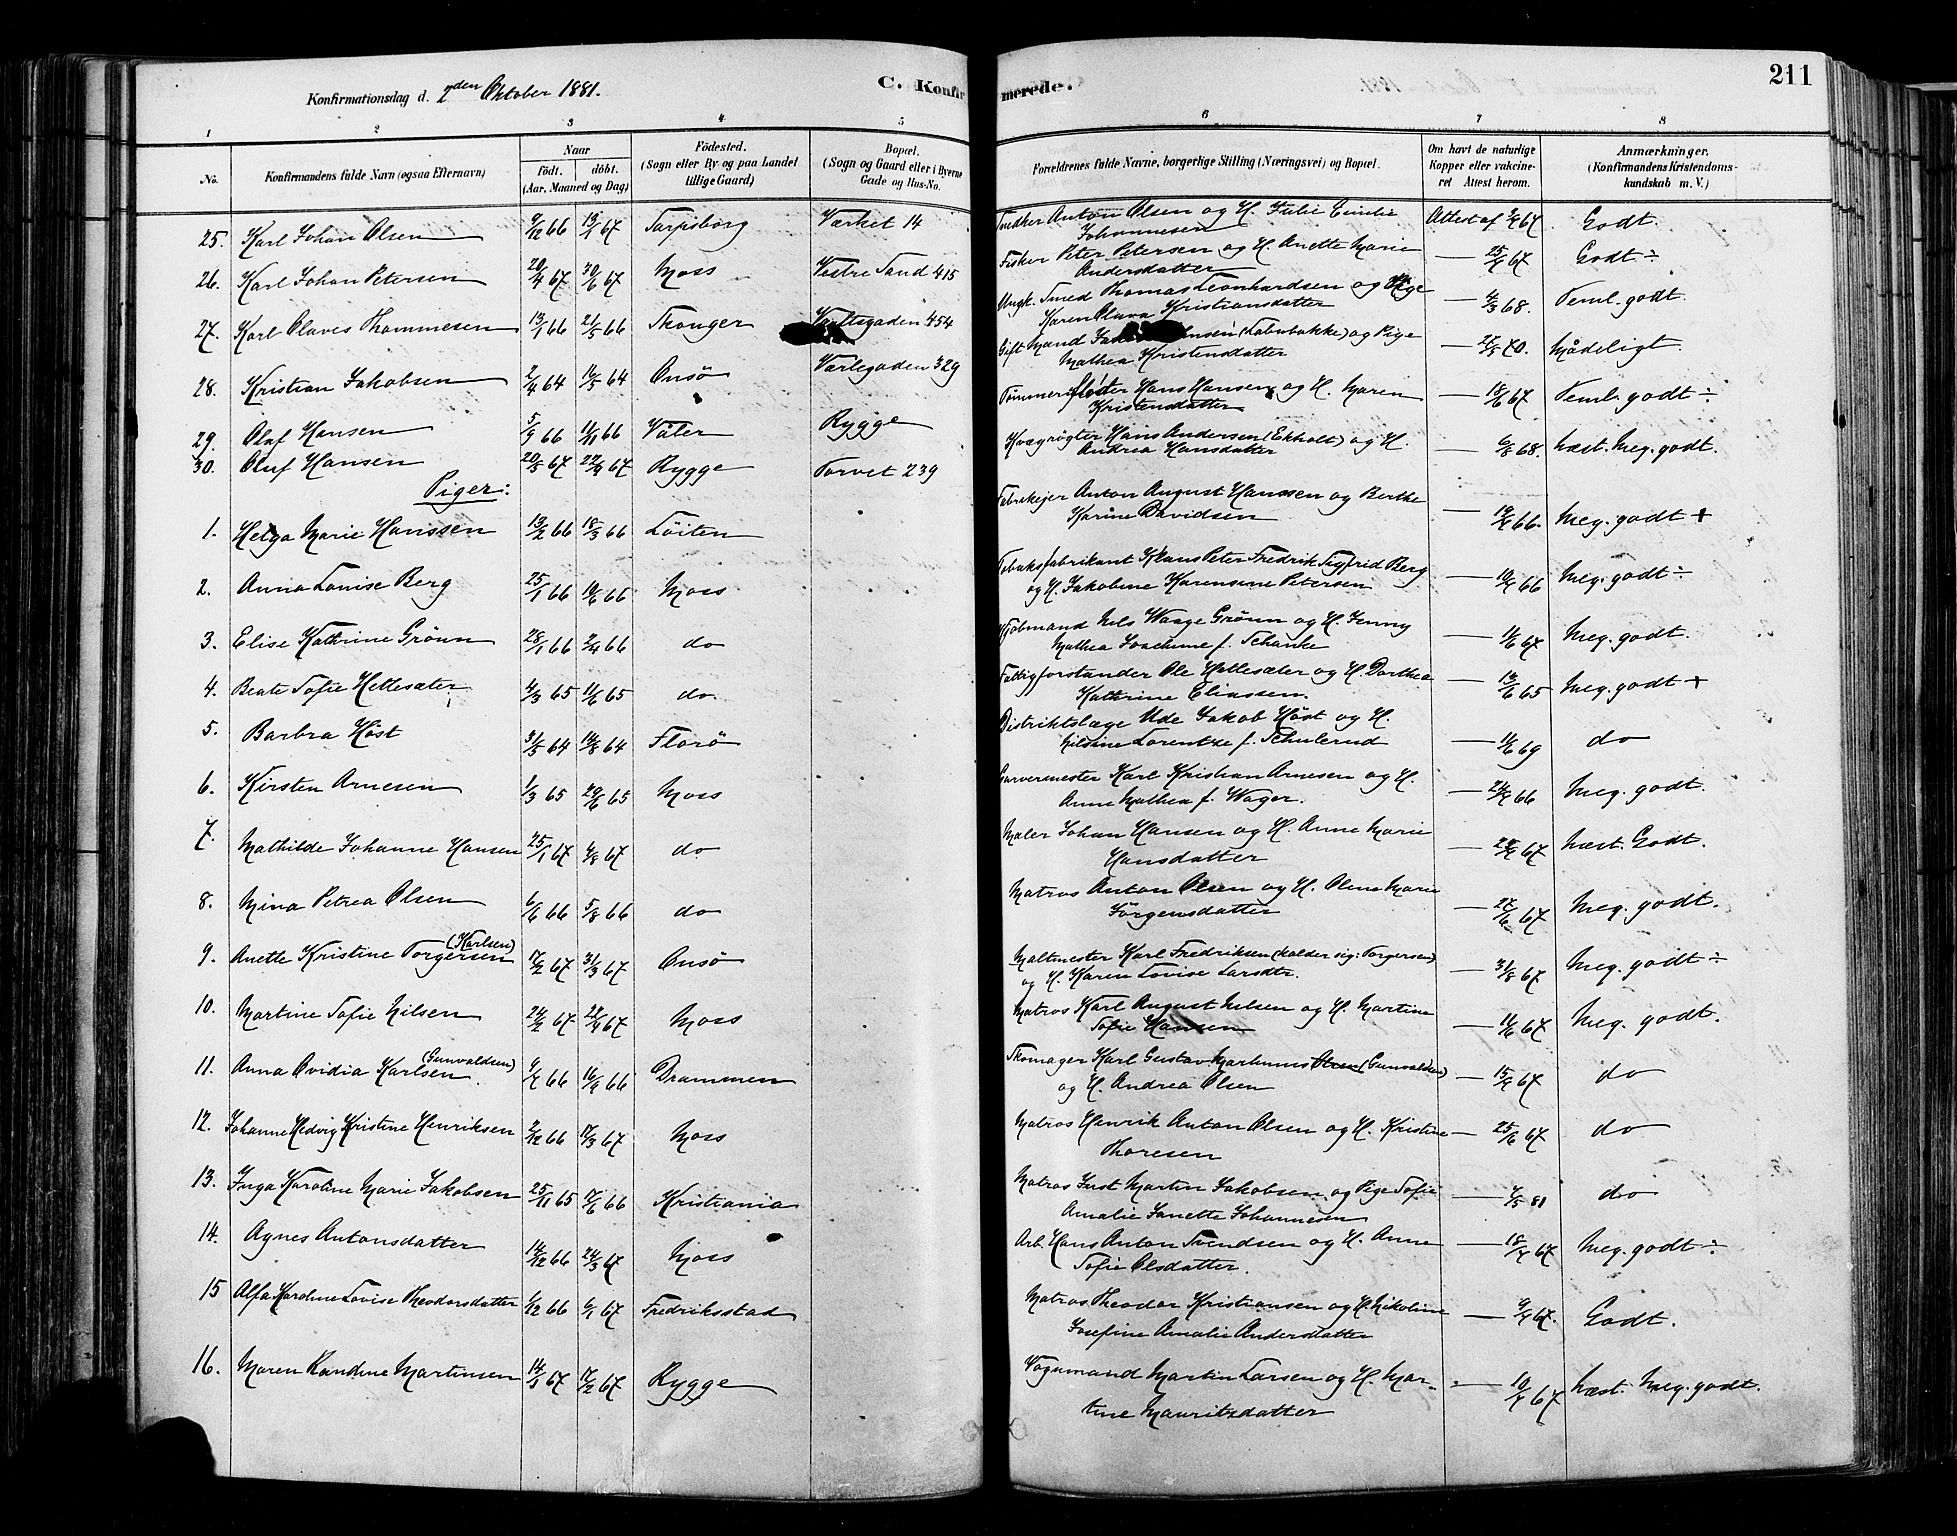 Konfirmationsdag d. 2den Oktober 1881.
C. Konfir
merede.
211
1 2 3 4 5 6 7 8
No.
Konfirmandens fulde Navn (ogsaa Efternavn)
Naar
födt. döbt.
(Aar, Maaned og Dag)
Födested.
(Sogn eller By og paa Landet
tillige Gaard)
Bopæl.
(Sogn og Gaard eller i Byerne
Gade og Hus-No.
Forældrenes fulde Navne, borgerlige Stilling (Næringsvei) og Bopæl.
Om havt de naturlige
Kopper eller vakcine-
ret Attest herom.
Anmærkninger.
(Konfirmandens Kristendoms-
kundskab m. V.)
25. Karl Johan Olsen 9/12 66 13/1 67 Sarpsborg Værket 14 Snedker Anton Olsen og H. Julie Emilie Attest af 67 Godt.
Johannesen
26. Karl Johan Petersen 20/4 67 30/6 67 Moss Vestre Sand 415 Fisker Peter Petersen og H. Anette Marie — 25/ 67 Godt ÷
Andersdatter
27. Karl Olaves Thommesen 13/1 66 21/5 66 Skouger 454 Ungk. Smed Thomas Leonhardsen og Pige — 4/3 68. Teml. godt.
Karen Olava Kristiansdatter
28. Kristian Jakobsen 2/4 64 16/5 64 Onsö Varlegaden 329 Gift Mand (Labobakke) og Pige — 70. Mådeligt.
Mathea Kristensdatter
29. Olaf Hansen 5/9 66 11/11 66 Våler Rygge Tömmerfløter Hans Hansen og H. Maren — 18/6 67 Teml. godt ÷
Kristensdatter
30. Oluf Hansen 20/5 67 22/9 67 Rygge Torvet 239 Kvægrögter Hans Andersen (Ekholt) og H. — 6/8 68. Næst. Meg. godt.
Andrea Hansdatter
Piger:
1. Helga Marie Hanssen 13/2 66 18/3 66 Löiten Fabrikejer Anton August Hanssen og Berthe — 66. Meg. godt +
Karine Davidsen
2. Anna Lovise Berg 25/1 66 10/6 66 Moss Tobaksfabrikant Klaus Peter Fredrik Sigfrid Berg — 66 Meg. godt ÷
og H. Jakobine Karensine Petersen
3. Elise Kathrine Grönn 28/1 66 2/4 66 do Kjöbmand Nils Waage Grönn og H. Jenny — 11/6 67 Meg. godt.
Mathea Joachime f. Schanke
4. Beate Sofie Hellesæter 4/3 65 11/6 65 do Fattigforstander Ole Hellesæter og H. Dorthea — 13/6 65 Meg. godt +
Kathrine Eliassen.
5. Barbra Höst 31/5 64 14/8 64 Florö Distriktslæge Ude Jakob Höst og H. — 11/6 69 do
Nilsine Lorentze f. Schulerud
6. Kirsten Arnesen 1/3 65 20/6 65 Moss Garvermester Karl Kristian Arnesen og H. — 66 Meg. godt.
Anne Mathea f. Wager.
7. Mathilde Johanne Hansen 25/1 67 4/8 67 do Maler Johan Hansen og H. Anne Marie — 67 Næst. Godt.
Hansdatter
8. Mina Petrea Olsen 6/6 66 5/8 66 do Matros Anton Olsen og H. Oline Marie — 27/6 67 Meg. godt.
Jörgensdatter
(Karlsen)
9. Anette Kristine Torgersen 17/2 67 31/3 67 Onsö Maltmester Karl Fredriksen (kalder sig: Torgersen) — 31/8 67 Meg. godt ÷
og H. Karen Lovise Larsdtr.
10. Martine Sofie Nilsen 24/2 67 28/4 67 Moss Matros Karl August Nilsen og H. Martine — 11/6 67 Meg. godt.
Sofie Hansen
(Gunvaldsen)
11. Anna Ovidia Karlsen 66 16/9 66 Drammen Skomager Karl Gustav (Gunvaldsen) — 67 do
og H. Andrea Olsen
12. Johanne Hedvig Kristine Henriksen 2/12 66 17/3 67 Moss Matros Henrik Anton Olsen og H. Kristine — 25/6 67 do
Thoresen
13. Inga Karoline Marie Jakobsen 25/11 65 17/6 66 Kristiania Matros Just Martin Jakobsen og Pige Sofie — 7/5 81 do
Amalie Janette Johannesen
14. Agnes Antonsdatter 14/12 66 24/3 67 Moss Arb. Hans Anton Svendsen og H. Anne — 67 Meg. godt ÷
Sofie Olsdatter.
15 Alfa Karoline Lovise Theodorsdatter 1/12 66 6/1 67 Fredriksstad Matros Theodor Kristiansen og H. Nikoline — 67. Godt.
Josefine Amalie Andersdatter
16. Maren Randine Martinsen 14/1 67 17/2 67 Rygge Vognmand Martin Larsen og H. Mar- — 67 Næst. Meg. godt.
tine Mauritzdatter